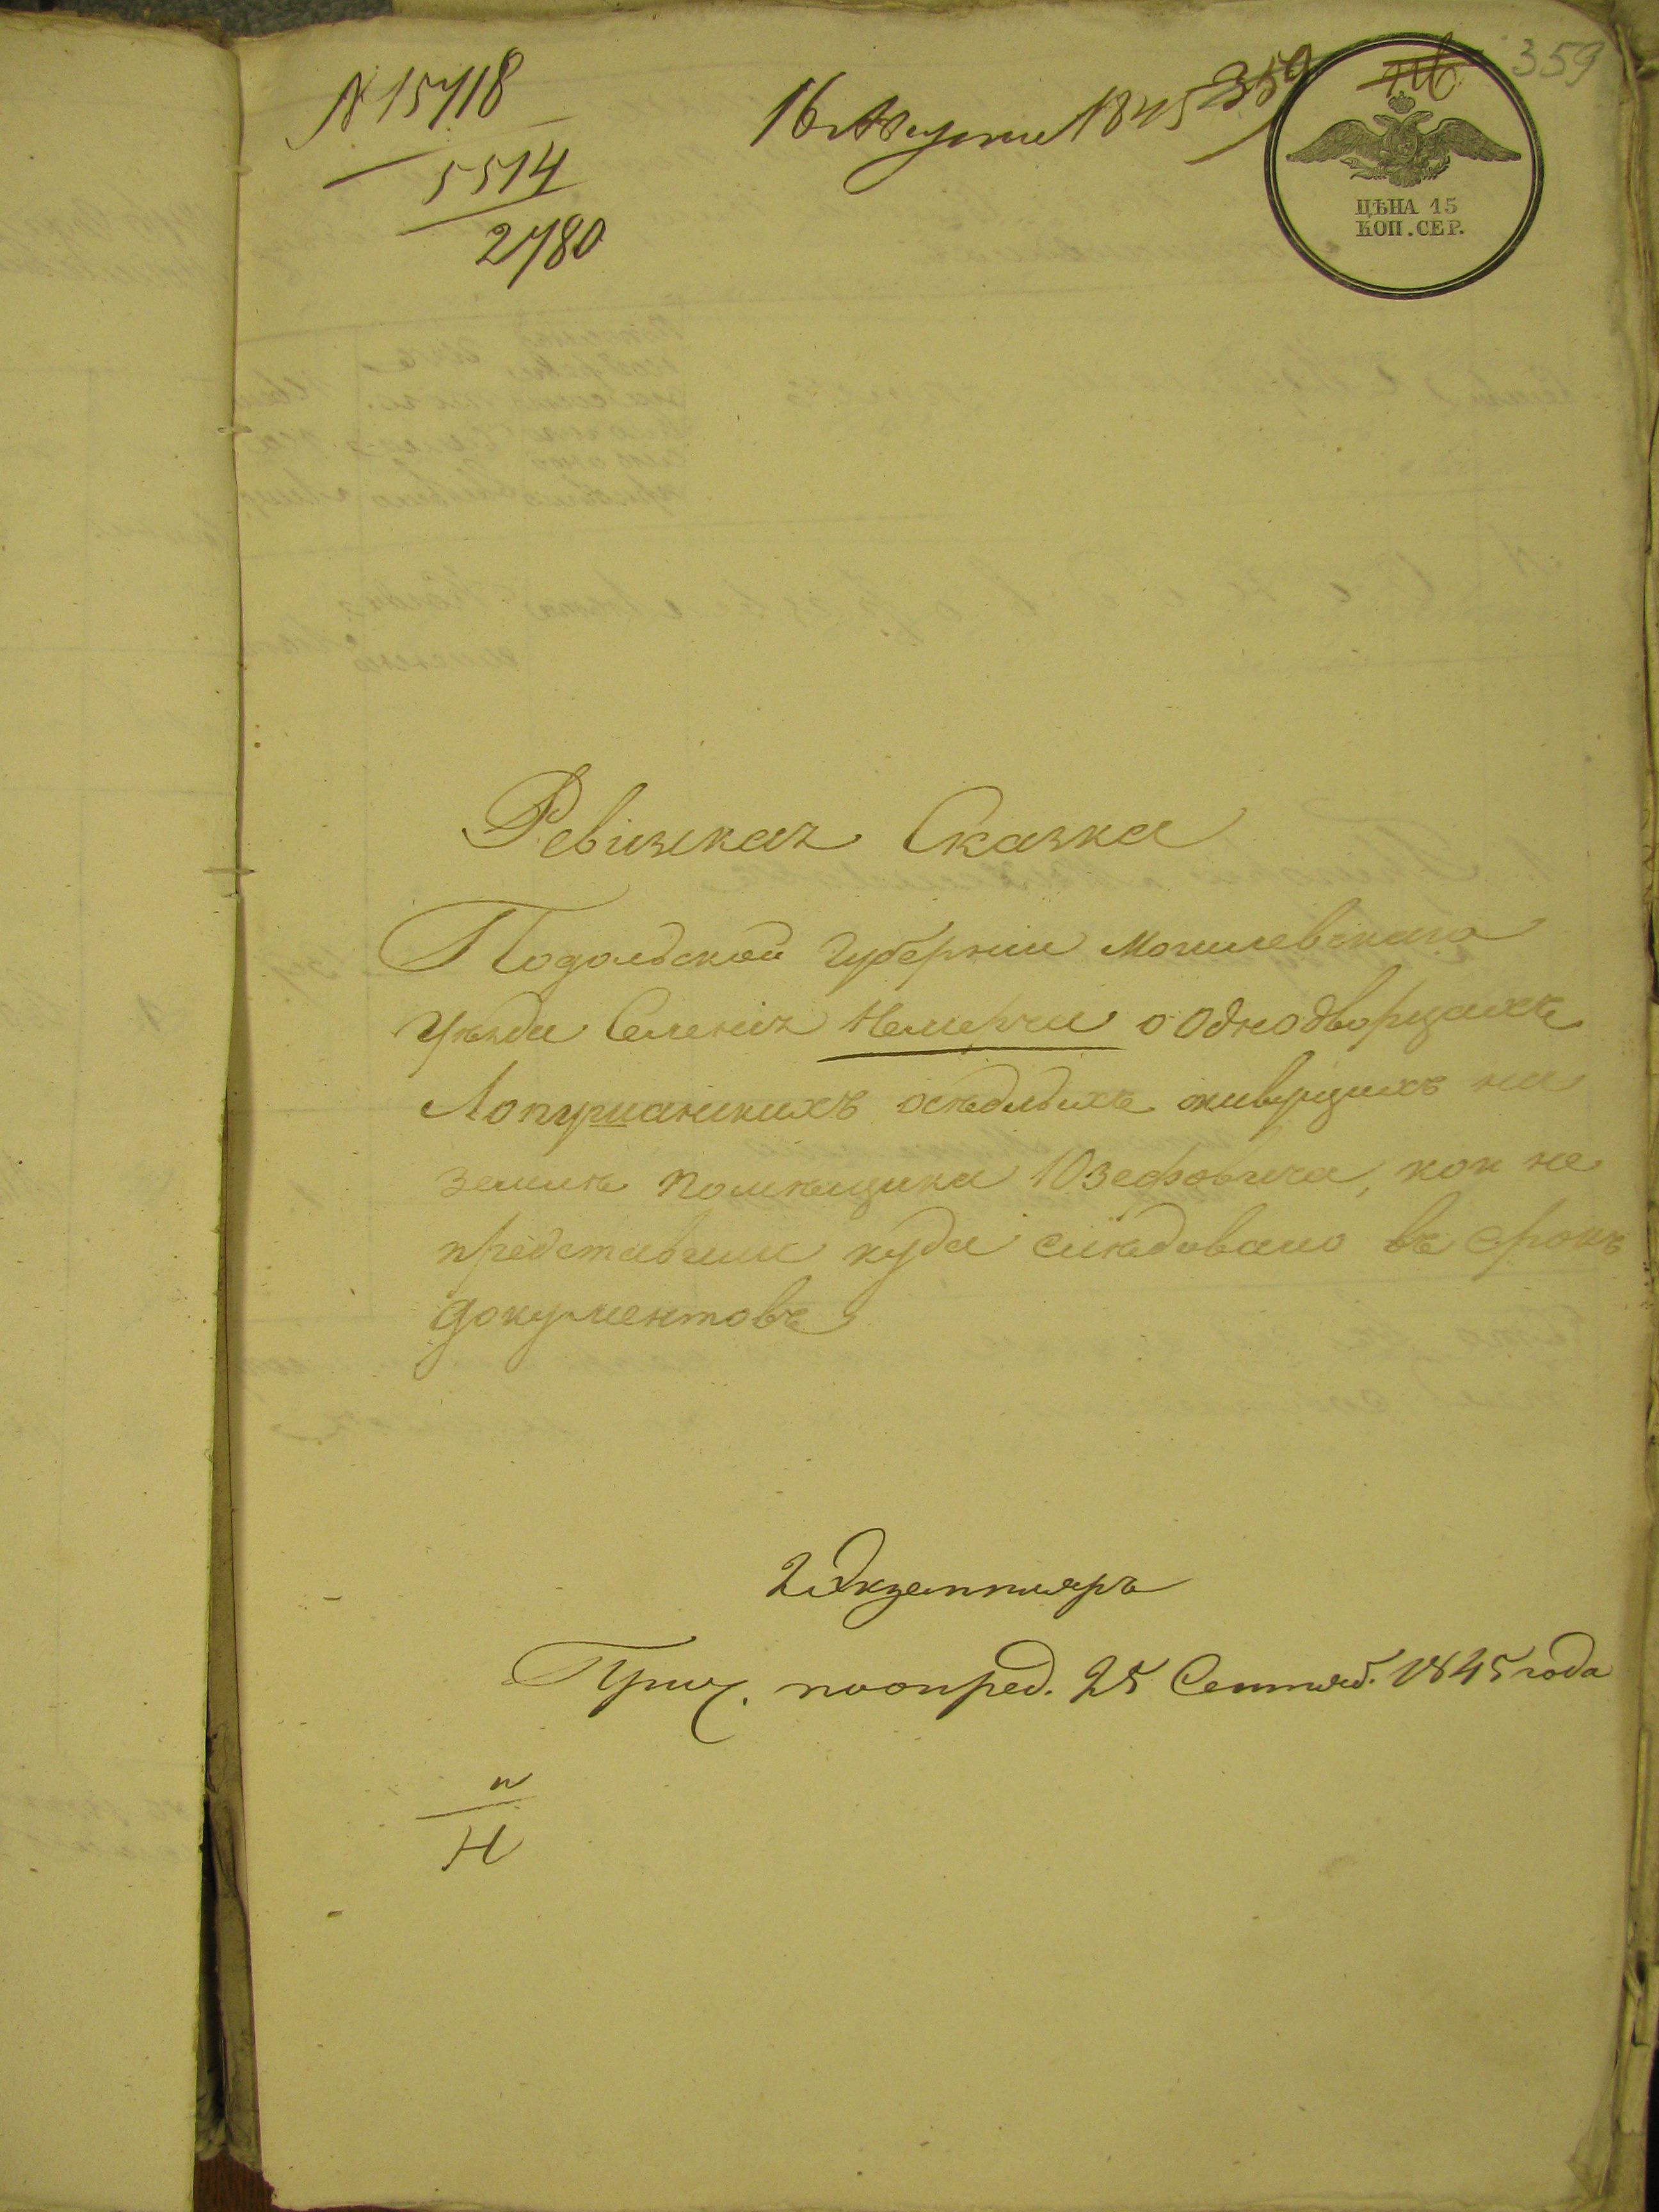 № 15718
5514
2780
16 Августа 1845
359
359
ЦѢНА 15
КОП. СЕР.
Ревизская Сказка
Подольской Губернии Могилевскаго
Уѣзда Селенія Немерчи о Однодворцахъ
Лопушанскихъ осѣдлыхъ живущихъ на
землѣ помѣщика Юзефовича, кои не
представили куда слѣдовало въ срокъ
документовъ
2 Экземпляръ
Прич. по опред. 25 Сентяб. 1845 года
Н